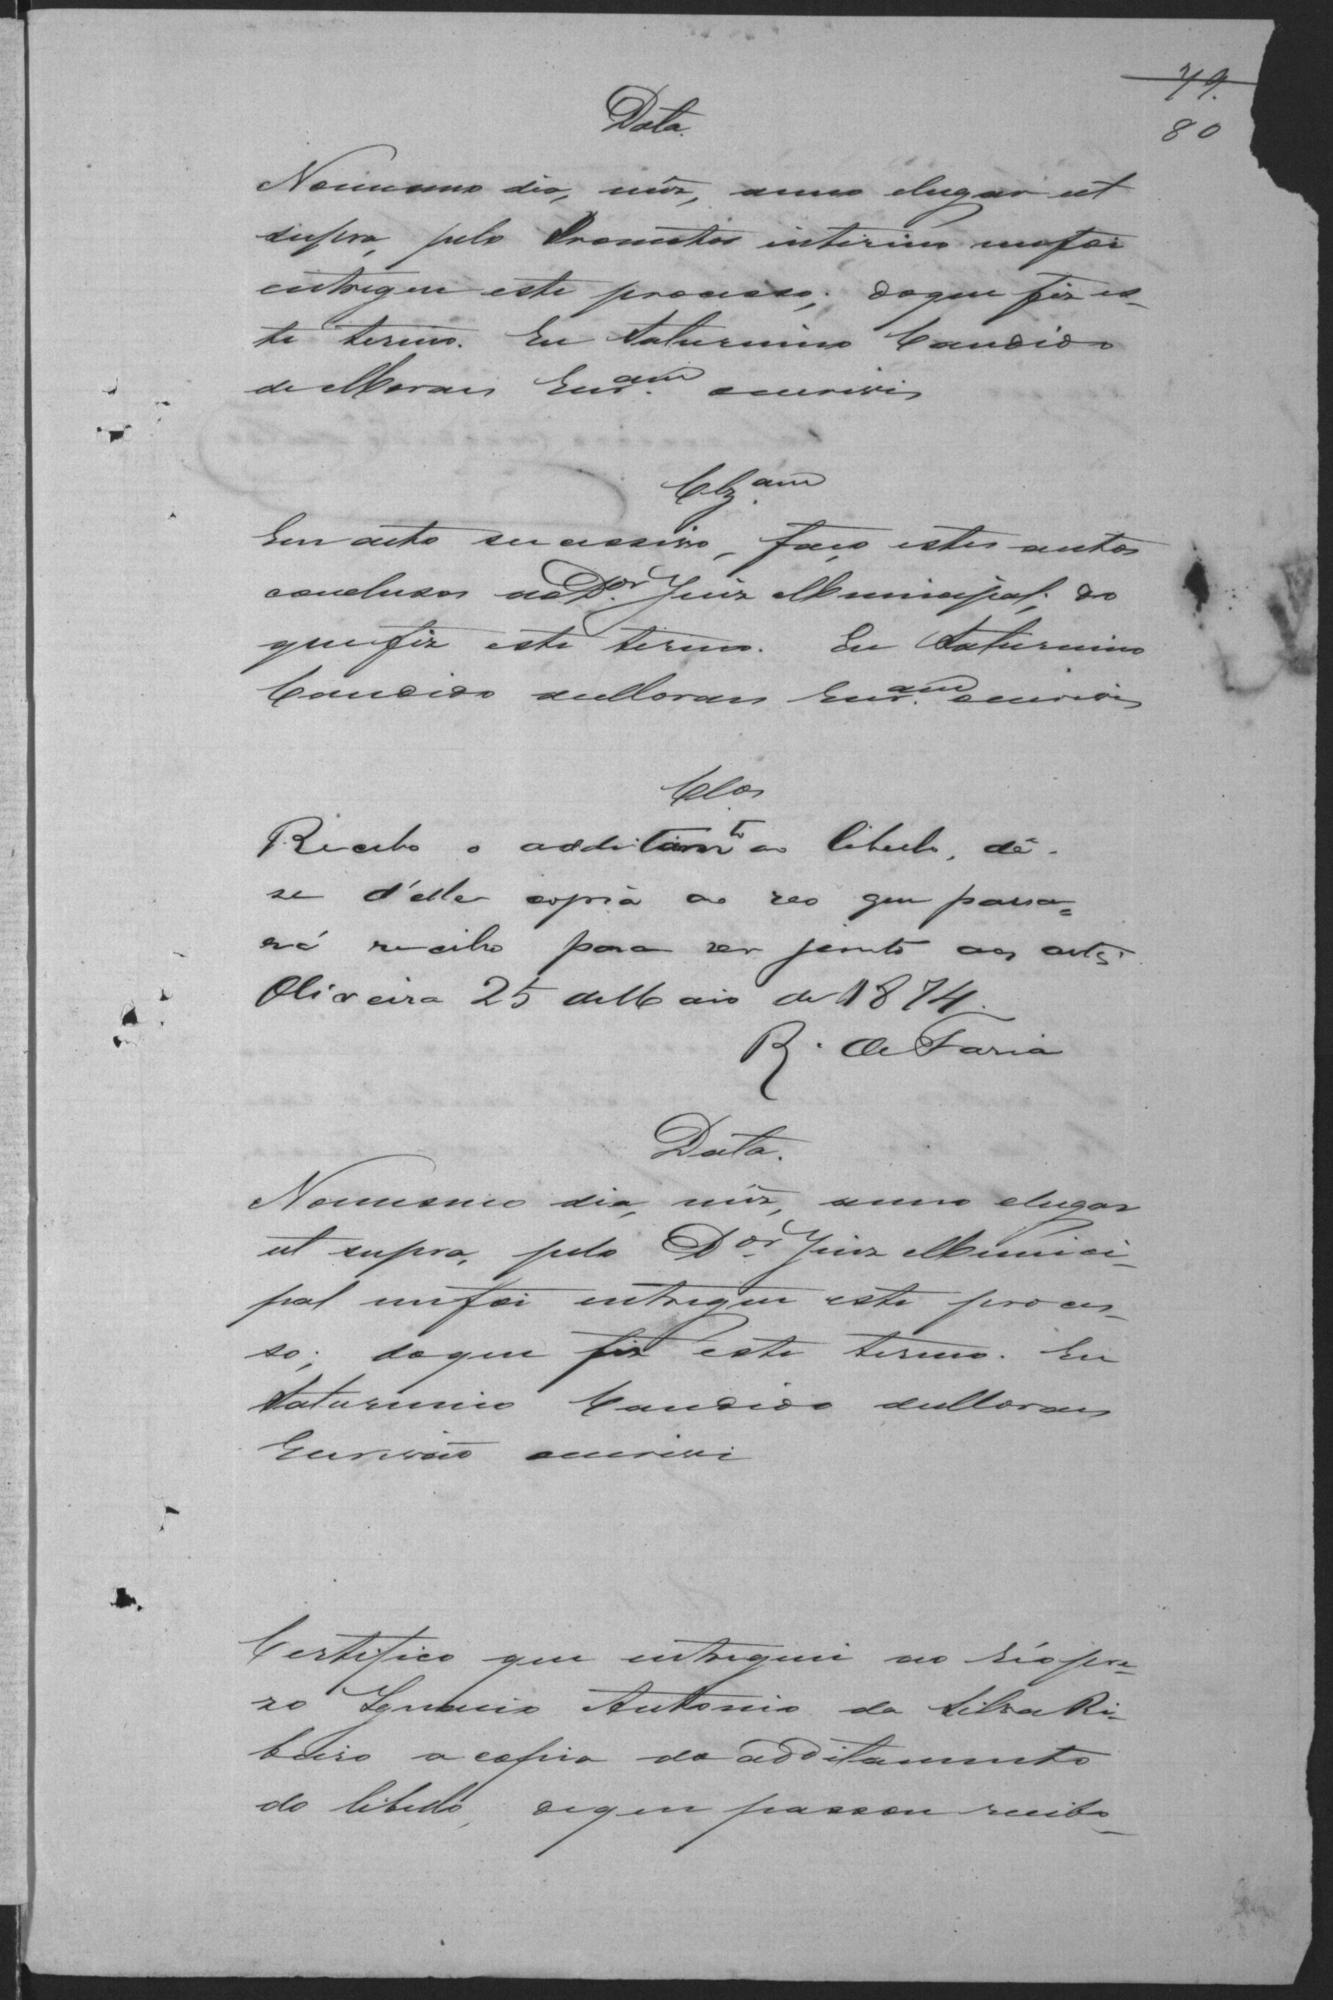 79.
80
Data.
Nomesmo dia, mêz, anno elugar ut
supra, pelo Promotor interino mefoi
entregue este processo; doque fiz es-
te termo. Eu Saturnino Candido
de Moraes Escr.am oescrivi

Clz.am
Em acto sucessivo, faço estes autos
conclusos ao D.or Juiz Municipal; do
quefiz este termo. Eu Saturnino
Candido deMoraes Escr.am oescrivi

Clos
Recebo o additamto ao libello, dê-
se d'elle copia ao reo que passa=
rá recibo para ser junto aos autos.
Oliveira 25 deMaio de 1874.
R. de Faria
Data.
Nomesmo dia, mêz, anno elugar
ut supra, pelo D.or Juiz Munici-
pal mefoi entregue este proces-
so; doque fiz este termo. Eu
Saturnino Candido deMoraes
Escrivão oescrivi

Certifico que entreguei ao réo pre-
zo Ignacio Antonio da Silva Ri-
beiro a copia do additamento
do libello, deque passou recibo-